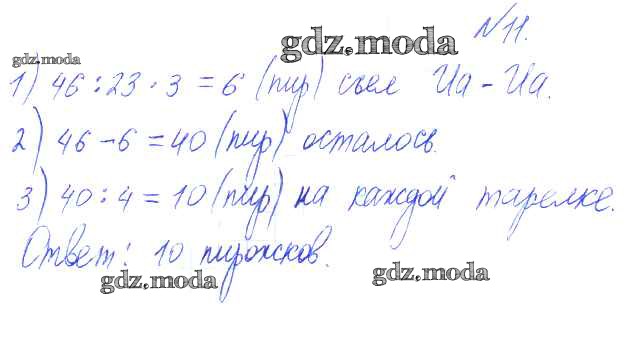 gdz.moda №11.
gdz.moda
1) 46 : 23 · 3 = 6 (пир) съел Иа - Иа.
2) 46 - 6 = 40 (пир) осталось.
3) 40 : 4 = 10 (пир) на каждой тарелке.
Ответ: 10 пирожков.
gdz.moda gdz.moda